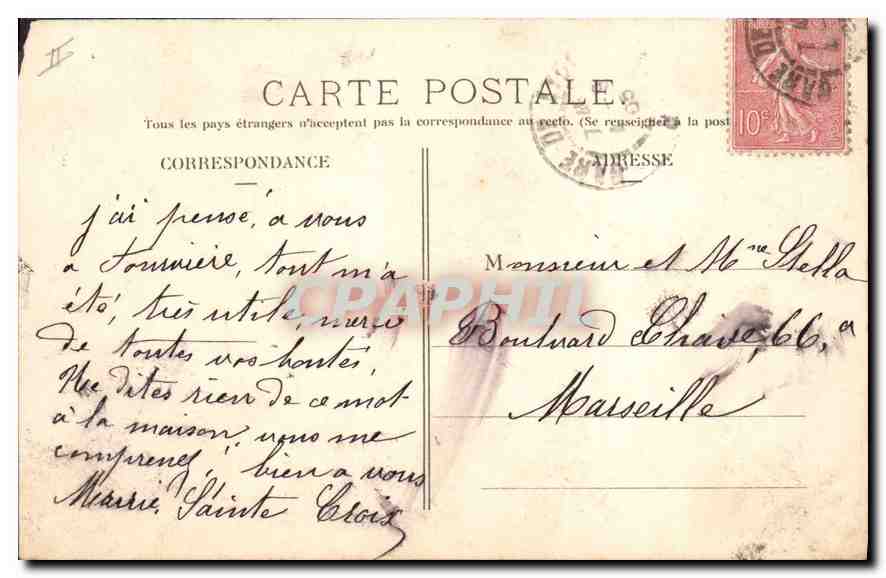 II
CARTE POSTALE.
Tous les pays étrangers n'acceptent pas la correspondance au recto. (Se renseigner à la post
10c
GARE DE
GARE DE
CORRESPONDANCE
j'ai pensé, a vous
a Fourvière, tout m'a
été, très utile, merci
de toutes vos bontés,
Ne dites rien de ce mot
à la maison, vous me
comprenez, bien a vous
Marrie, Sainte Croix
ADRESSE
Monsieur et Mme Stella
Boulvard Chave, 66, a
Marseille
CPAPHIL